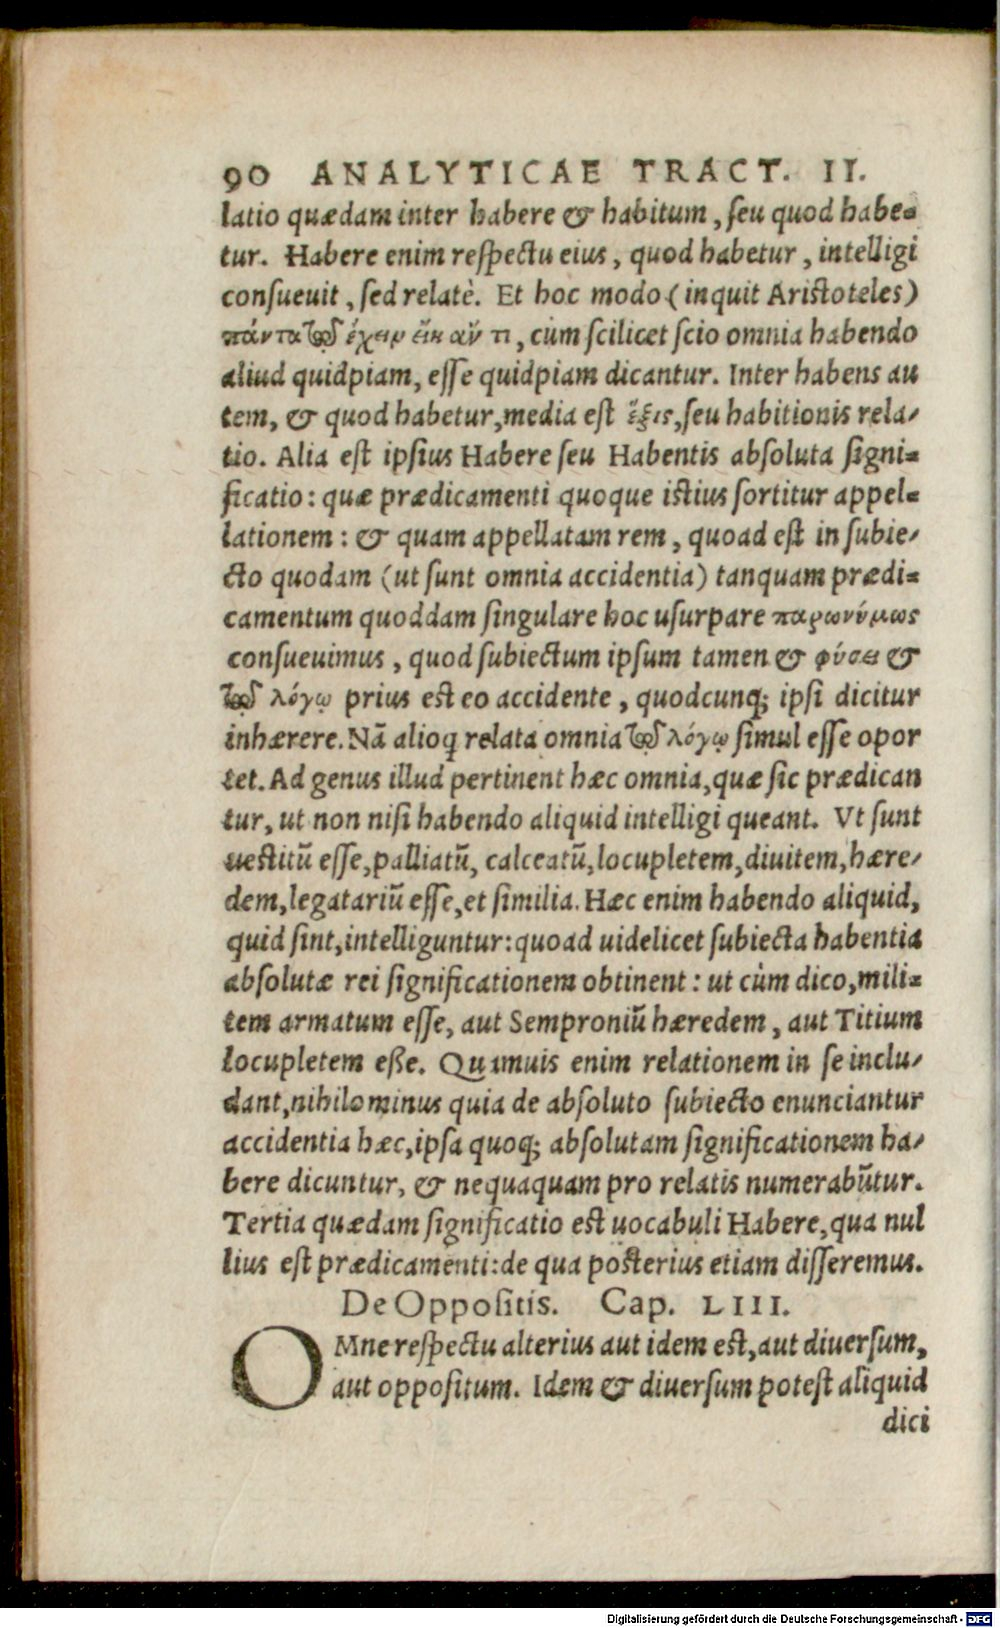 90 ANALYTICAE TRACT. II.
latio quædam inter habere & habitum, seu quod habe-
tur. Habere enim respectu eius, quod habetur, intelligi
consueuit, sed relatè. Et hoc modo (inquit Aristoteles)
πάντα τῷ ἔχειν εἴη ἄν τι, cùm scilicet scio omnia habendo
aliud quidpiam, esse quidpiam dicantur. Inter habens au
tem, & quod habetur, media est ἕξις, seu habitionis rela-
tio. Alia est ipsius Habere seu Habentis absoluta signi-
ficatio: quæ prædicamenti quoque istius sortitur appel-
lationem: & quam appellatam rem, quoad est in subie-
cto quodam (ut sunt omnia accidentia) tanquam prædi-
camentum quoddam singulare hoc usurpare παρωνύμως
consueuimus, quod subiectum ipsum tamen & φύσει &
τῷ λόγῳ prius est eo accidente, quodcunq; ipsi dicitur
inhærere. Nã alioq relata omnia τῷ λόγῳ simul esse opor
tet. Ad genus illud pertinent hæc omnia, quæ sic prædican
tur, ut non nisi habendo aliquid intelligi queant. Vt sunt
uestitũ esse, palliatũ, calceatũ, locupletem, diuitem, hære-
dem, legatariũ esse, et similia. Hæc enim habendo aliquid,
quid sint, intelliguntur: quoad uidelicet subiecta habentia
absolutæ rei significationem obtinent: ut cùm dico, mili-
tem armatum esse, aut Semproniũ hæredem, aut Titium
locupletem eße. Quamuis enim relationem in se inclu-
dant, nihilominus quia de absoluto subiecto enunciantur
accidentia hæc, ipsa quoq; absolutam significationem ha-
bere dicuntur, & nequaquam pro relatis numerabũtur.
Tertia quædam significatio est uocabuli Habere, qua nul
lius est prædicamenti: de qua posterius etiam disseremus.
De Oppositis. Cap. LIII.
OMne respectu alterius aut idem est, aut diuersum,
aut oppositum. Idem & diuersum potest aliquid
dici
Digitalisierung gefördert durch die Deutsche Forschungsgemeinschaft - DFG